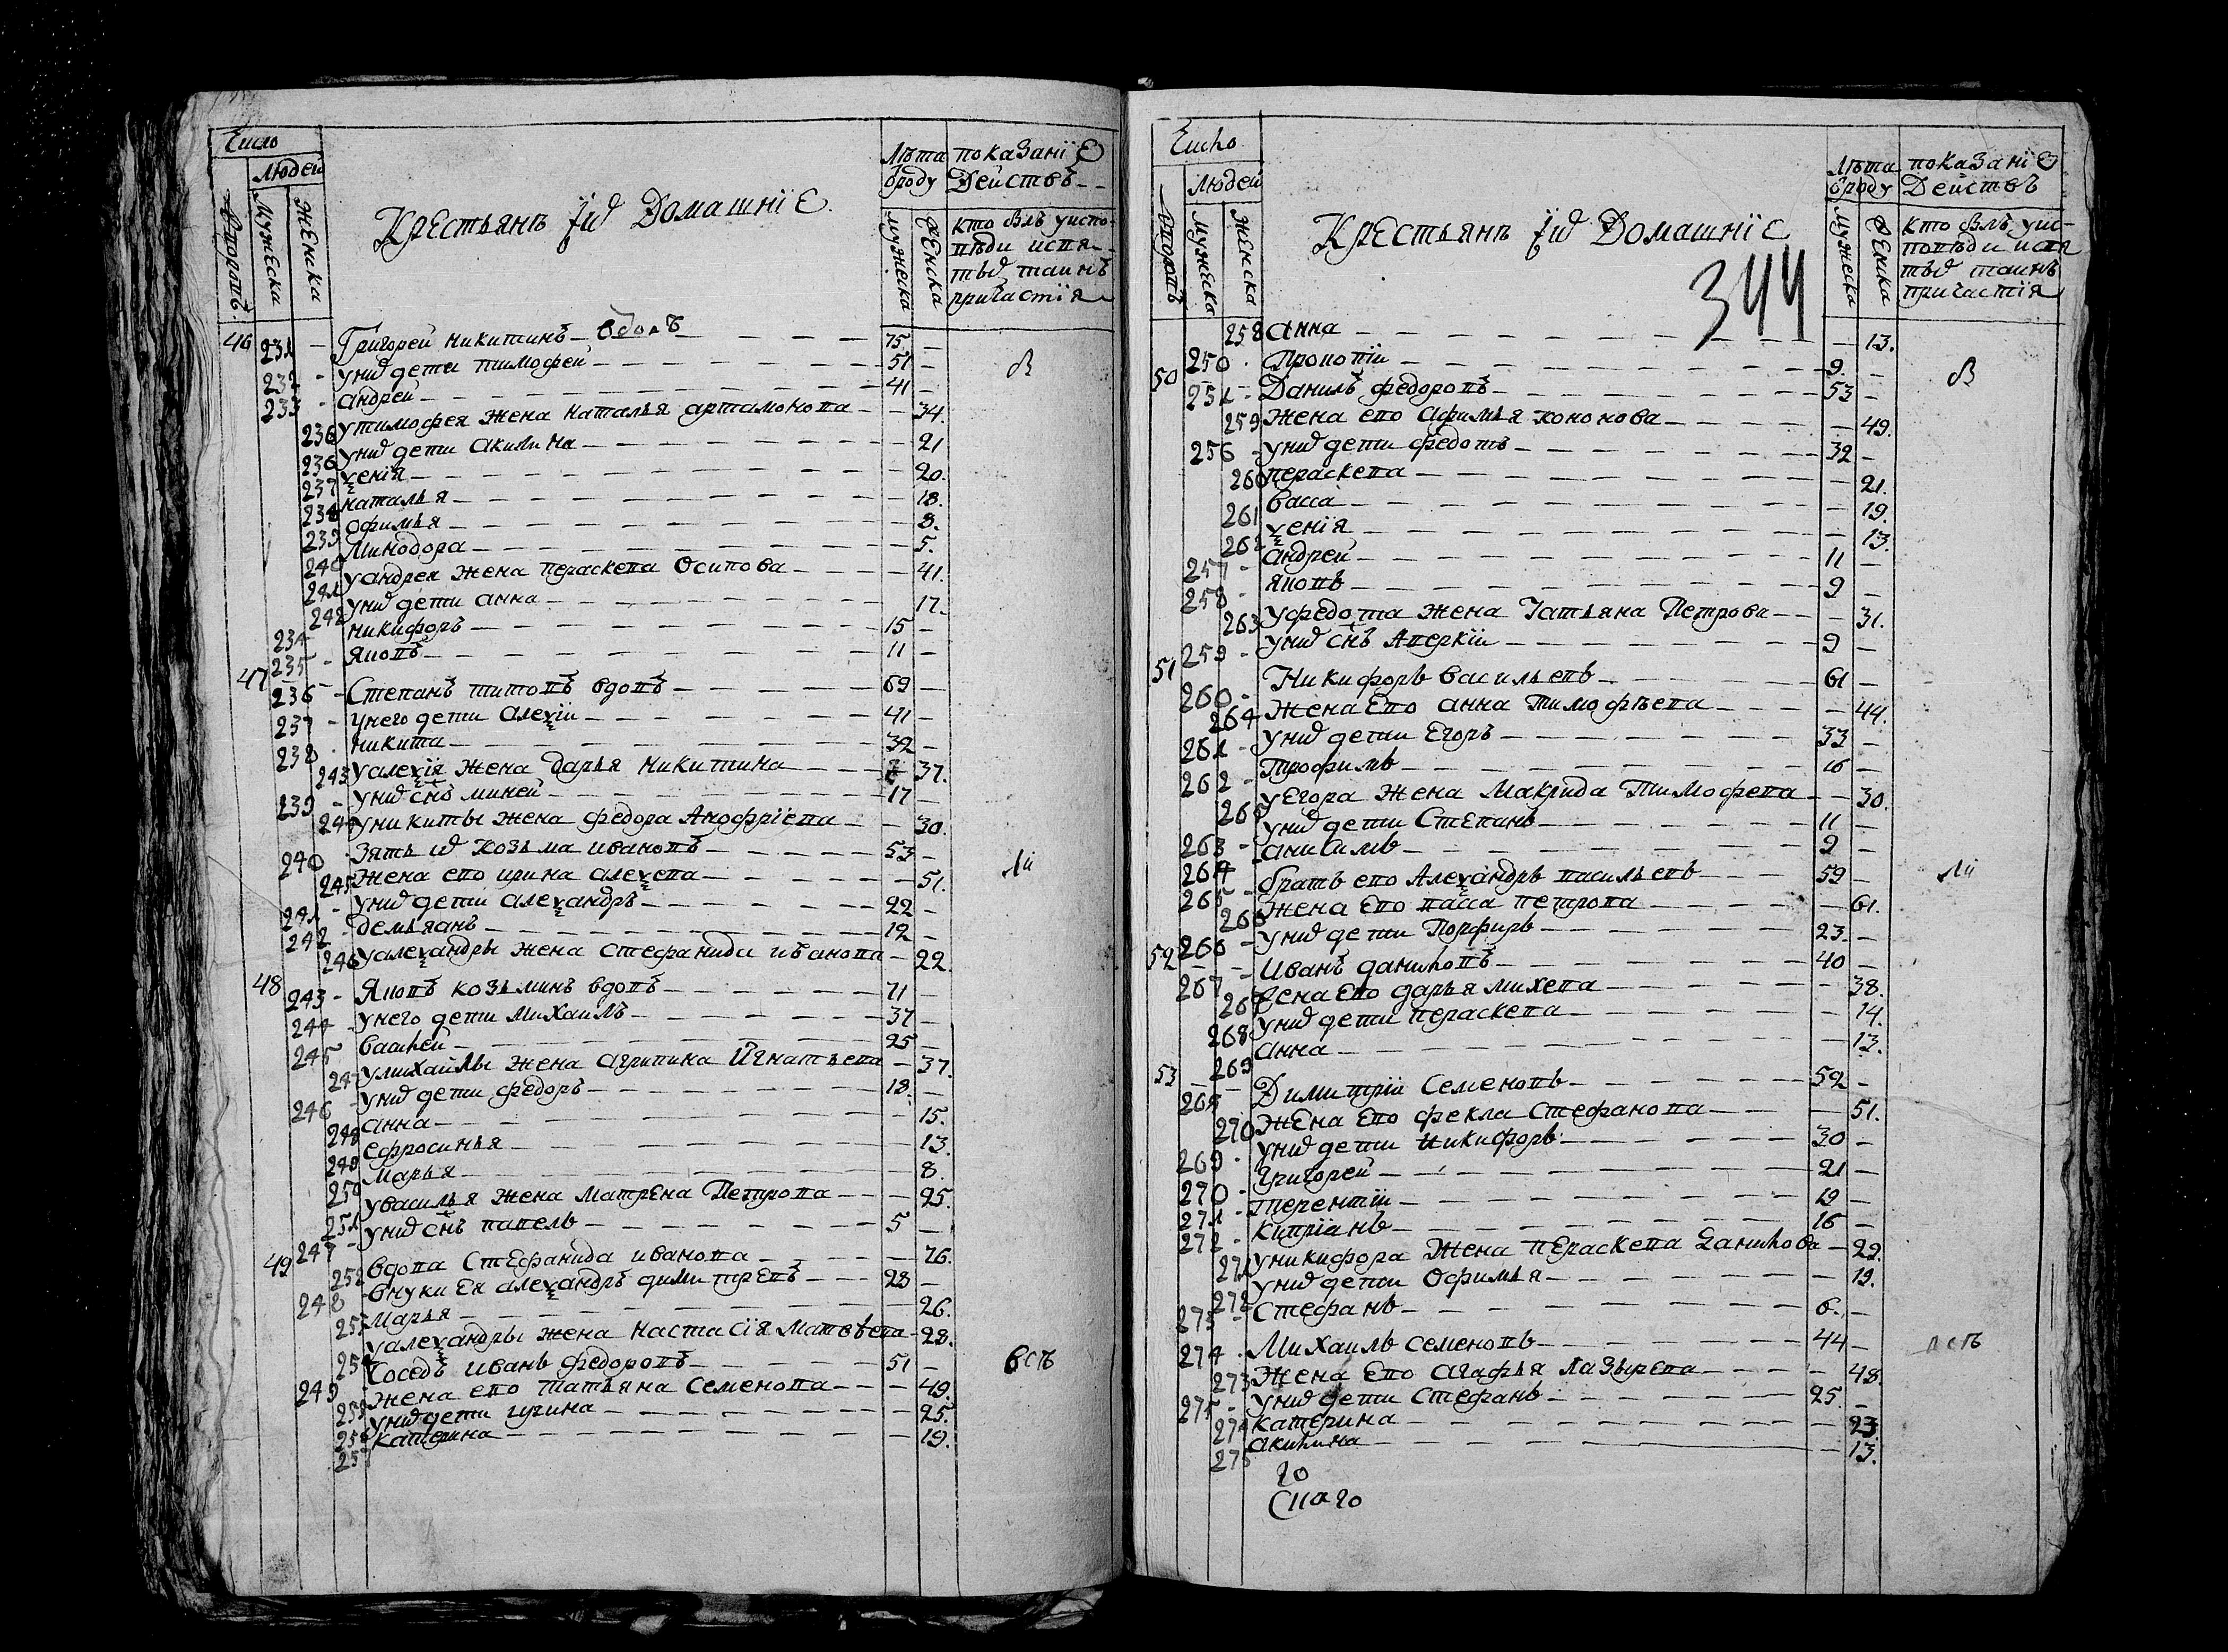 Число
Людей
дворовъ
Мужеска
Женска
Крестьянъ иⷯ Домашніе
Лѣта ѿроду
мужеска
женска
показаніе Действъ
кто былъ уисповѣди исвятыⷯ таинъ причастія
46 231 - Григорей никитинъ вдовъ 75 -
232 - униⷯ дети тимофей 51 -
233 - андрей 41 -
236 утимофея жена наталья артамонова - 34.
236 униⷯ дети акилина 21
237 ѯенія 20.
238 наталья 18.
239 офимья 8.
240 минодора 5.
241 уандрея жена параскева осипова 41.
242 униⷯ дети анна 17.
234 никифоръ 15 -
235 - яковъ 11 -
47 236 - Степанъ титовъ вдовъ 69 -
237 - унего дети алеѯіи 41 -
238 никита 32 -
243 уалеѯія жена дарья никитина 37.
239 - униⷯ сн҃ъ миней 17 -
244 уникиты жена федора анофріева - 30.
240 - зять иⷯ козьма ивановъ 53 -
245 жена ево ирина алеѯева - 51.
241 - униⷯ дети алеѯандръ 22 -
242 - демьянъ 12 -
246 уалеѯандры жена стефанида иванова - 22.
48 243 - Яковъ козьминъ вдовъ 71 -
244 - унего дети михаилъ 37 -
245 василей 25 -
247 умихайлы жена агрипина игнатьева - 37.
246 - униⷯ дети федоръ 18. -
248 анна 15.
249 ефросинья 13.
250 марья 8.
251 увасилья жена матрена петрова - 25.
247 - униⷯ сн҃ъ павелъ 5 -
49 252 вдова стефанида иванова - 76.
248 - внуки ея алеѯандръ димитревъ 28 -
253 марья 26.
254 уалеѯандры жена настасія матвѣева - 28.
249 - соседъ иванъ федоровъ 51 -
255 жена ево татьяна семенова - 49.
256 униⷯ дети ирина - 25.
257 катерина - 19.
в
ли
всѣ
Число
Людей
дворовъ
Мужеска
Женска
Крестьянъ иⷯ Домашніе
344
Лѣта ѿроду
мужеска
женска
показаніе Действъ
кто былъ уисповѣди исвятыⷯ таинъ причастія
258 анна - 13.
250 - прокопіи 9. -
50 251 - Данилъ федоровъ 53 -
259 жена ево афимья кононова - 49.
256 - униⷯ дети федотъ 32 -
260 параскева - 21.
261 васса - 19.
262 ѯенія - 13.
257 - андрей 11 -
258 - яковъ 9 -
263 уфедота жена татьяна петрова - 31.
259 - униⷯ сн҃ъ аверкіи 9 -
51 260 - Никифоръ васильевъ 61 -
264 жена ево анна тимофѣева - 44.
261 - униⷯ дети егоръ 33 -
262 - трофимъ 16 -
265 уегора жена макрида тимофева - 30.
263 - униⷯ дети степанъ 11 -
264 - анисимъ 9 -
265 - братъ ево алеѯандръ васильевъ 59 -
266 жена ево васса петрова - 61.
266 - униⷯ дети порфиръ 23. -
52 267 - Иванъ даниловъ 40 -
267 жена ево дарья михева - 38.
268 униⷯ дети параскева - 14.
269 анна - 13.
53 268 - Димитріи семеновъ 52 -
270 жена ево фекла стефанова - 51.
269 - униⷯ дети никифоръ 30 -
270 - григорей 21 -
271 - терентіи 19 -
272 - кипріанъ 16 -
271 уникифора жена параскева данилова - 22.
272 униⷯ дети офимья - 12.
273 - стефанъ 6. -
274 - Михаилъ семеновъ 44 -
273 жена ево агафья лазырева - 48.
275 - униⷯ дети стефанъ 25. -
274 катерина - 23
275 акилина - 13.
го
Спаго
в
ли
всѣ